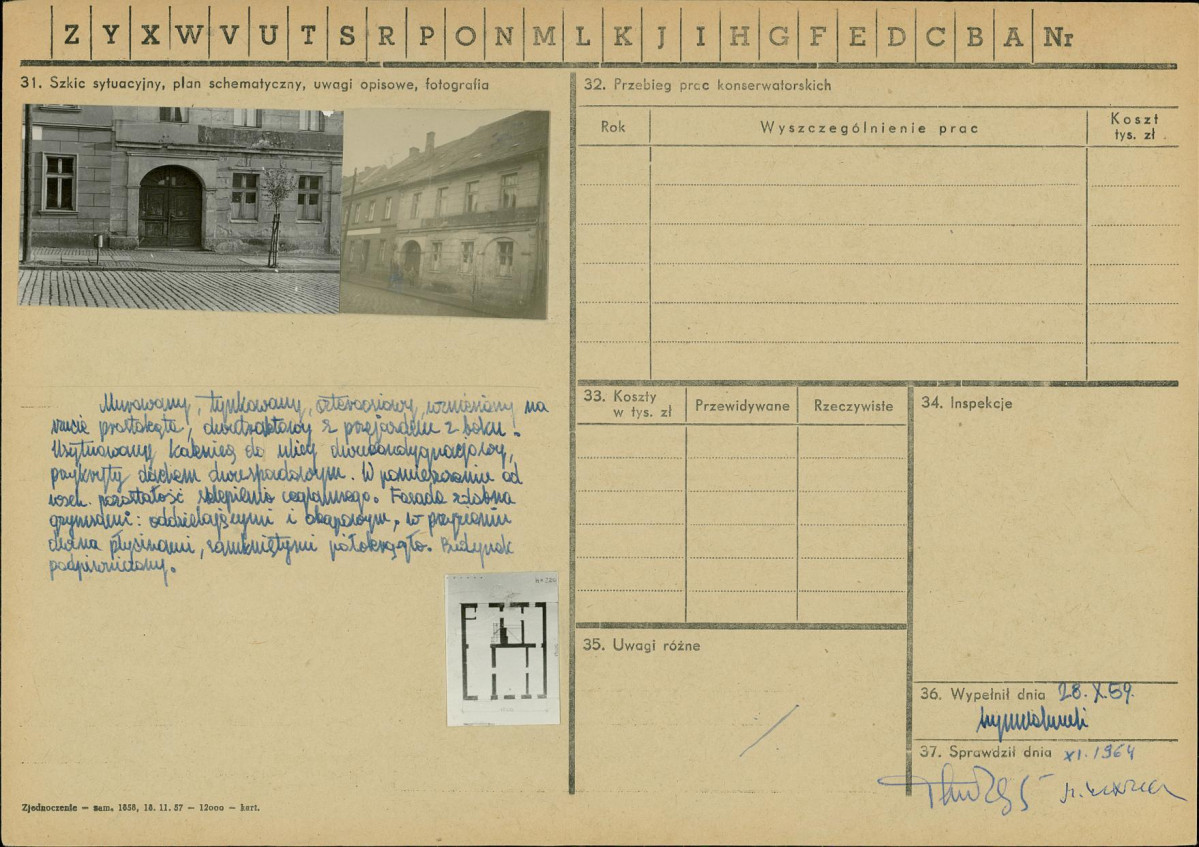 Z Y X W V U T S R P O N M L K J I H G F E D C B A Nr
31. Szkic sytuacyjny, plan schematyczny, uwagi opisowe, fotografia
Murowany, tynkowany, czteroosiowy, wzniesiony na
rzucie prostokąta, dwutraktowy z przejazdem z boku.
Usytuowany kalenicą do ulicy dwukondygnacjowy,
przykryty dachem dwuspadowym. W pomieszczeniu od
wsch. pozostałość sklepienia ceglanego. Fasada zdobna
gzymsami: oddzielającymi i okapowym, w przyziemiu
dwoma płycinami, zamkniętymi półokrągło. Budynek
podpiwniczony.
Zjednoczenie — zam. 1858, 18. 11. 57 — 12000 — kart.
32. Przebieg prac konserwatorskich
Rok
Wyszczególnienie prac
Koszt
tys. zł
33. Koszty
w tys. zł
Przewidywane
Rzeczywiste
34. Inspekcje
35. Uwagi różne
36. Wypełnił dnia 28. X. 59.
37. Sprawdził dnia XI. 1964